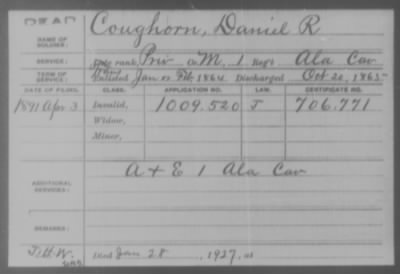 DEAD
NAME OF SOLDIER: Coughorn, Daniel R
SERVICE: rank, Priv Co M, 1 Reg't Ala Cav
TERM OF SERVICE: Enlisted Jan or Feb 1864 Discharged Oct 20, 1865
DATE OF FILING. CLASS. APPLICATION NO. LAW. CERTIFICATE NO.
1891 Apr 3 Invalid, 1009.520 J 706.771
Widow,
Minor,
ADDITIONAL SERVICES: A + E 1 Ala Cav
REMARKS:
Died Jan 28, 1927, at